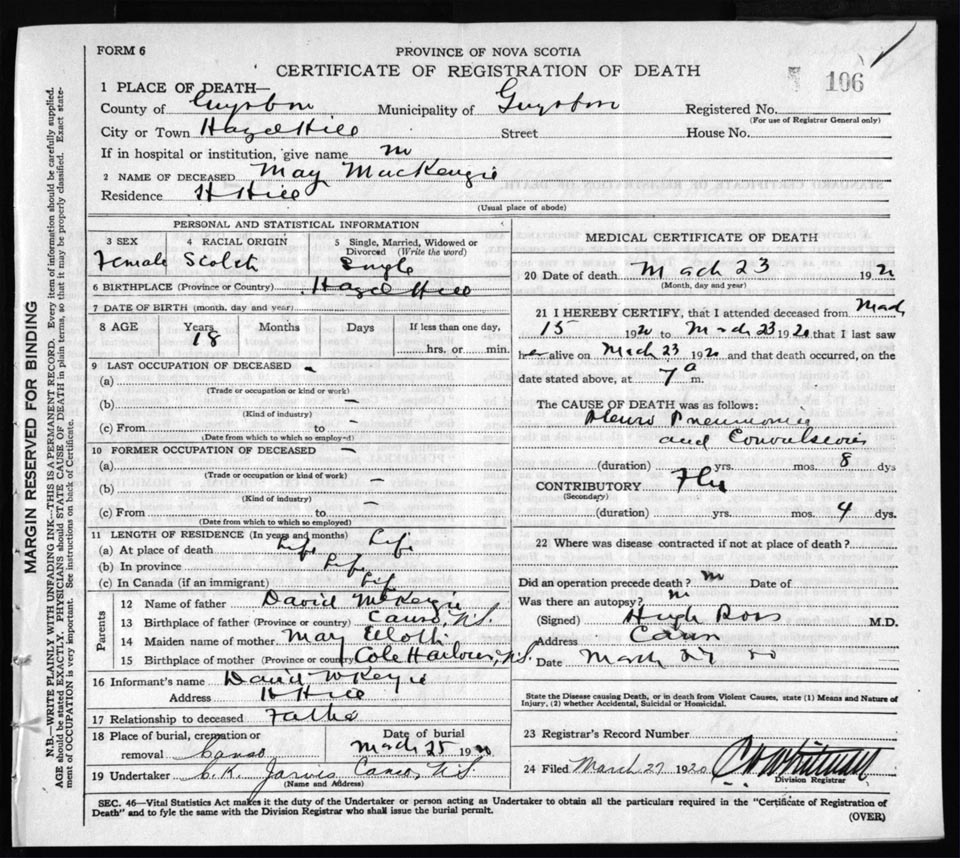 FORM 6
PROVINCE OF NOVA SCOTIA
CERTIFICATE OF REGISTRATION OF DEATH
106
1 PLACE OF DEATH—
County of Guysboro Municipality of Guysboro Registered No.
(For use of Registrar General only)
City or Town Hazel Hill Street House No.
If in hospital or institution, give name no
2 NAME OF DECEASED May MacKenzie
Residence H Hill
(Usual place of abode)
PERSONAL AND STATISTICAL INFORMATION
3 SEX 4 RACIAL ORIGIN 5 Single, Married, Widowed or Divorced (Write the word)
Female Scotch Single
6 BIRTHPLACE (Province or Country) Hazel Hill
7 DATE OF BIRTH (month, day and year)
8 AGE Years Months Days If less than one day,
18 hrs. or min.
9 LAST OCCUPATION OF DECEASED –
(a)
(Trade or occupation or kind of work)
(b) –
(Kind of industry)
(c) From to –
(Date from which to which so employed)
10 FORMER OCCUPATION OF DECEASED –
(a)
(Trade or occupation or kind of work)
(b) –
(Kind of industry)
(c) From to –
(Date from which to which so employed)
11 LENGTH OF RESIDENCE (In years and months)
(a) At place of death Life Life
(b) In province Life
(c) In Canada (if an immigrant) Life
Parents
12 Name of father David McKenzie
13 Birthplace of father (Province or country) Canso, N.S.
14 Maiden name of mother May
15 Birthplace of mother (Province or country) Cole Harbour, N.S.
16 Informant's name David McKenzie
Address H Hill
17 Relationship to deceased Father
18 Place of burial, cremation or removal Canso
Date of burial
March 25 1920
19 Undertaker C.K. Jarvis Canso, N.S.
(Name and Address)
MEDICAL CERTIFICATE OF DEATH
20 Date of death March 23 192
(Month, day and year)
21 I HEREBY CERTIFY, that I attended deceased from March
15 1920 to March 23 1920 that I last saw
her alive on March 23 1920 and that death occurred, on the
date stated above, at 7 a m.
The CAUSE OF DEATH was as follows:
Pleuro Pneumonia
and Convulsions
(duration) yrs. mos. 8 dys
CONTRIBUTORY Flu
(Secondary)
(duration) yrs. mos. 4 dys.
22 Where was disease contracted if not at place of death?
Did an operation precede death? no Date of
Was there an autopsy? no
(Signed) Hugh Ross M.D.
Address Canso
Date March 27 20
State the Disease causing Death, or in death from Violent Causes, state (1) Means and Nature of
Injury, (2) whether Accidental, Suicidal or Homicidal.
23 Registrar's Record Number
24 Filed March 27 1920
Division Registrar
SEC. 46—Vital Statistics Act makes it the duty of the Undertaker or person acting as Undertaker to obtain all the particulars required in the "Certificate of Registration of
Death" and to fyle the same with the Division Registrar who shall issue the burial permit.
(OVER)
MARGIN RESERVED FOR BINDING
N.B.—WRITE PLAINLY WITH UNFADING INK—THIS IS A PERMANENT RECORD. Every item of information should be carefully supplied.
AGE should be stated EXACTLY. PHYSICIANS should STATE CAUSE OF DEATH in plain terms, so that it may be properly classified. Exact state-
ment of OCCUPATION is very important. See instructions on back of Certificate.